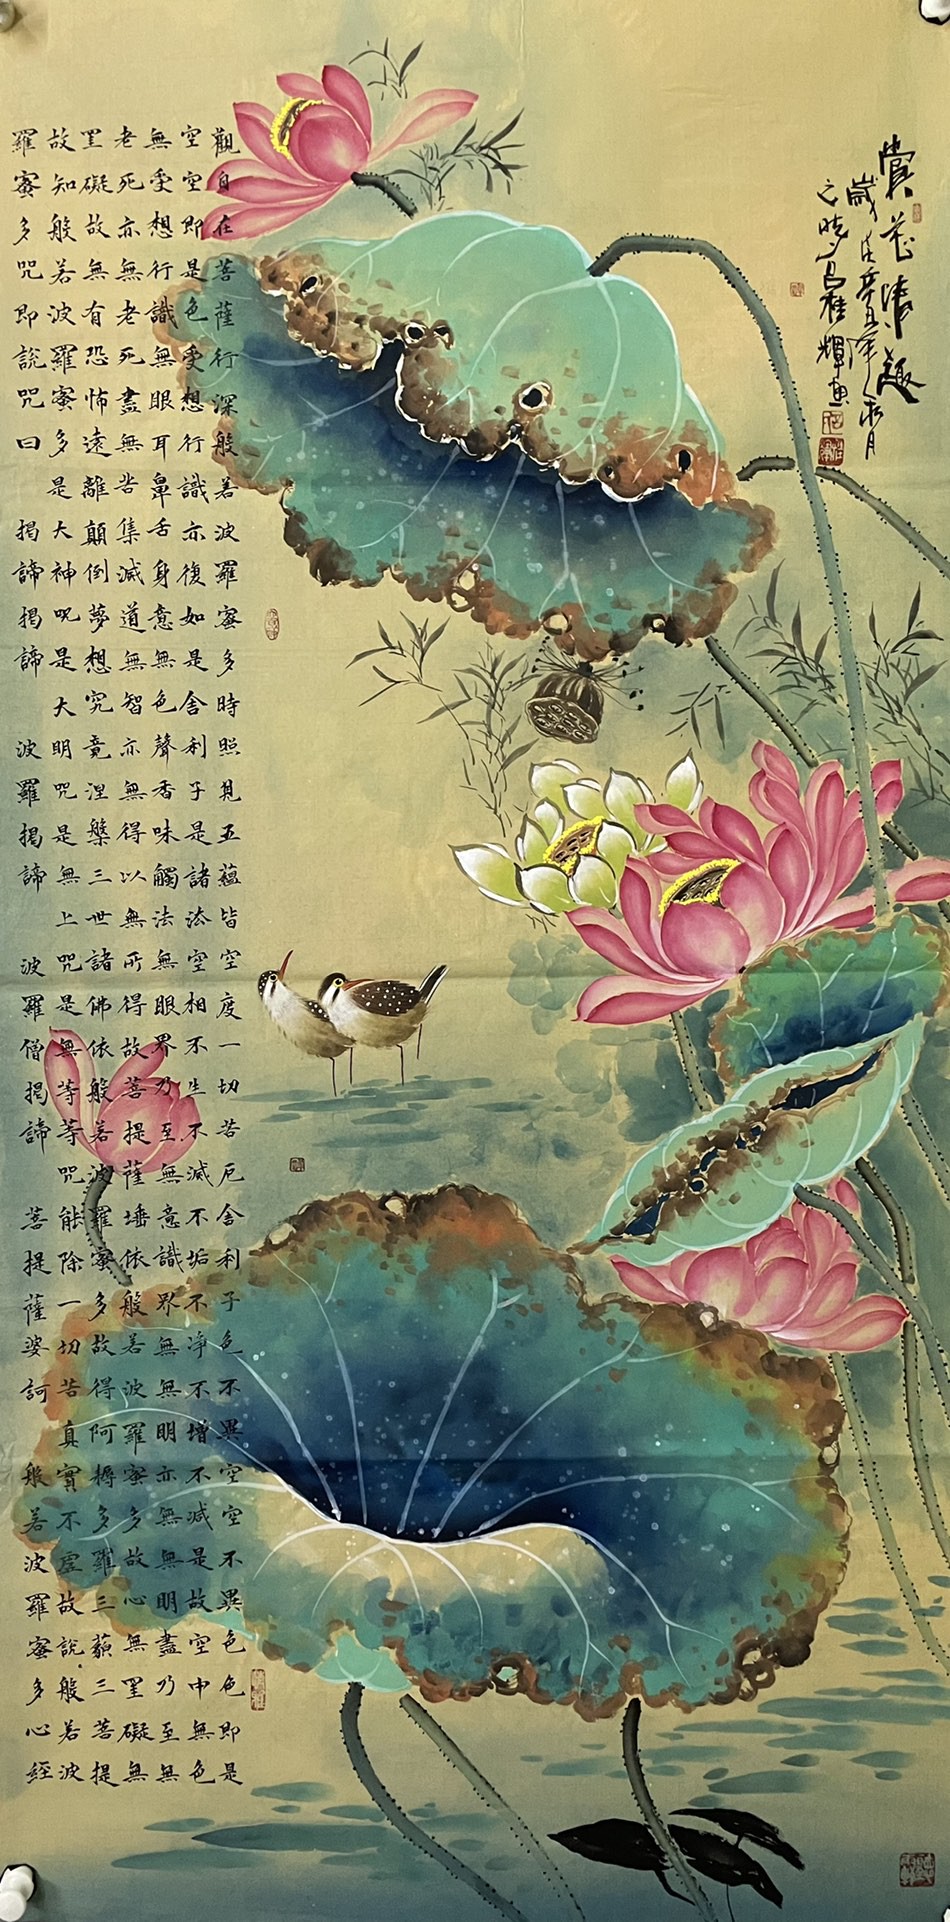 賞花清趣
歲辛丑年月
之時呂桂輝畫
觀自在菩薩行深般若波羅蜜多時照見五蘊皆空度一切苦厄舍利子色不異空空不異色色即是
空空即是色受想行識亦復如是舍利子是諸法空相不生不滅不垢不净不增不減是故空中無色
無受想行識無眼耳鼻舌身意無色聲香味觸法無眼界乃至無意識界無無明亦無無明盡乃至無
老死亦無老死盡無苦集滅道無智亦無得以無所得故菩提薩埵依般若波羅蜜多故心無罣礙無
罣礙故無有恐怖遠離顛倒夢想究竟涅槃三世諸佛依般若波羅蜜多故得阿耨多羅三藐三菩提
故知般若波羅蜜多是大神咒是大明咒是無上咒是無等等咒能除一切苦真實不虛故說般若波
羅蜜多咒即說咒曰 揭諦揭諦 波羅揭諦 波羅僧揭諦 菩提薩婆訶 般若波羅蜜多心經